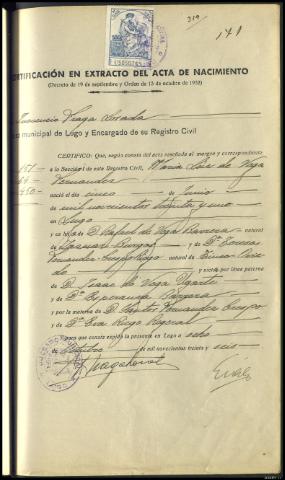 319
141
CERTIFICACIÓN EN EXTRACTO DEL ACTA DE NACIMIENTO
(Decreto de 19 de septiembre y Orden de 13 de octubre de 1932)
Fraga
municipal de Lugo y Encargado de su Registro Civil
CERTIFICO: Que, según consta del acta reseñada al margen y correspondiente
a la Sección 1.ª de este Registro Civil, María Luz de Vega
Fernández
nació el día cinco de Junio
de mil novecientos treinta y uno
en Lugo
y es hija de D. Rafael de Vega natural
de Burgos y de D.ª
Fernández Crespo Riego natural de
y nieta por línea paterna
de D. Isaac de Vega Ugarte
y de D.ª Esperanza
y por la materna de D. Santos Fernández Crespo
y de D.ª Eva Riego
Y para que conste expido la presente en Lugo a ocho
de Octubre de mil novecientos treinta y seis